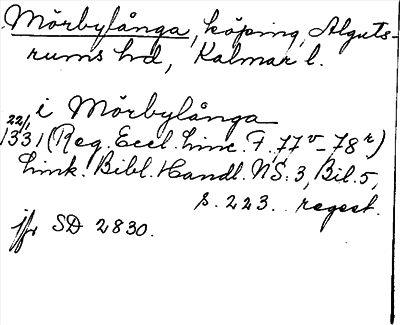 Mörbylånga, köping, Alguts-
rums hd, Kalmar l.
i Mörbylånga
22/1
1331 (Reg. Eccl. Linc. F. 77v–78r)
Link. Bibl. Handl. NS: 3, Bil. 5,
s. 223. regest.
jfr SD 2830.